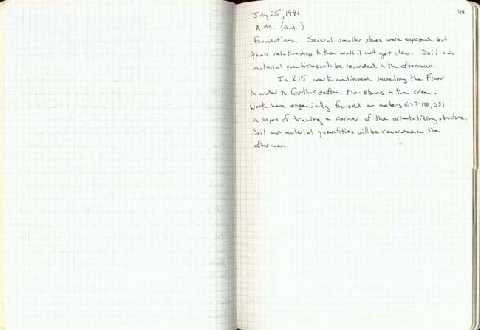 July 25, 1986
49
A.M.
foundations. Several smaller stones were exposed but
their relationship to the wall is not yet clear. Soil and
material quantities will be recorded in the afternoon.
In R15 work continued removing the floor
in order to further define the stones in the area.
Work here especially focused on meters
in hopes of tracing a corner of the orientalizing structure.
Soil and material quantities will be recorded in the
afternoon.